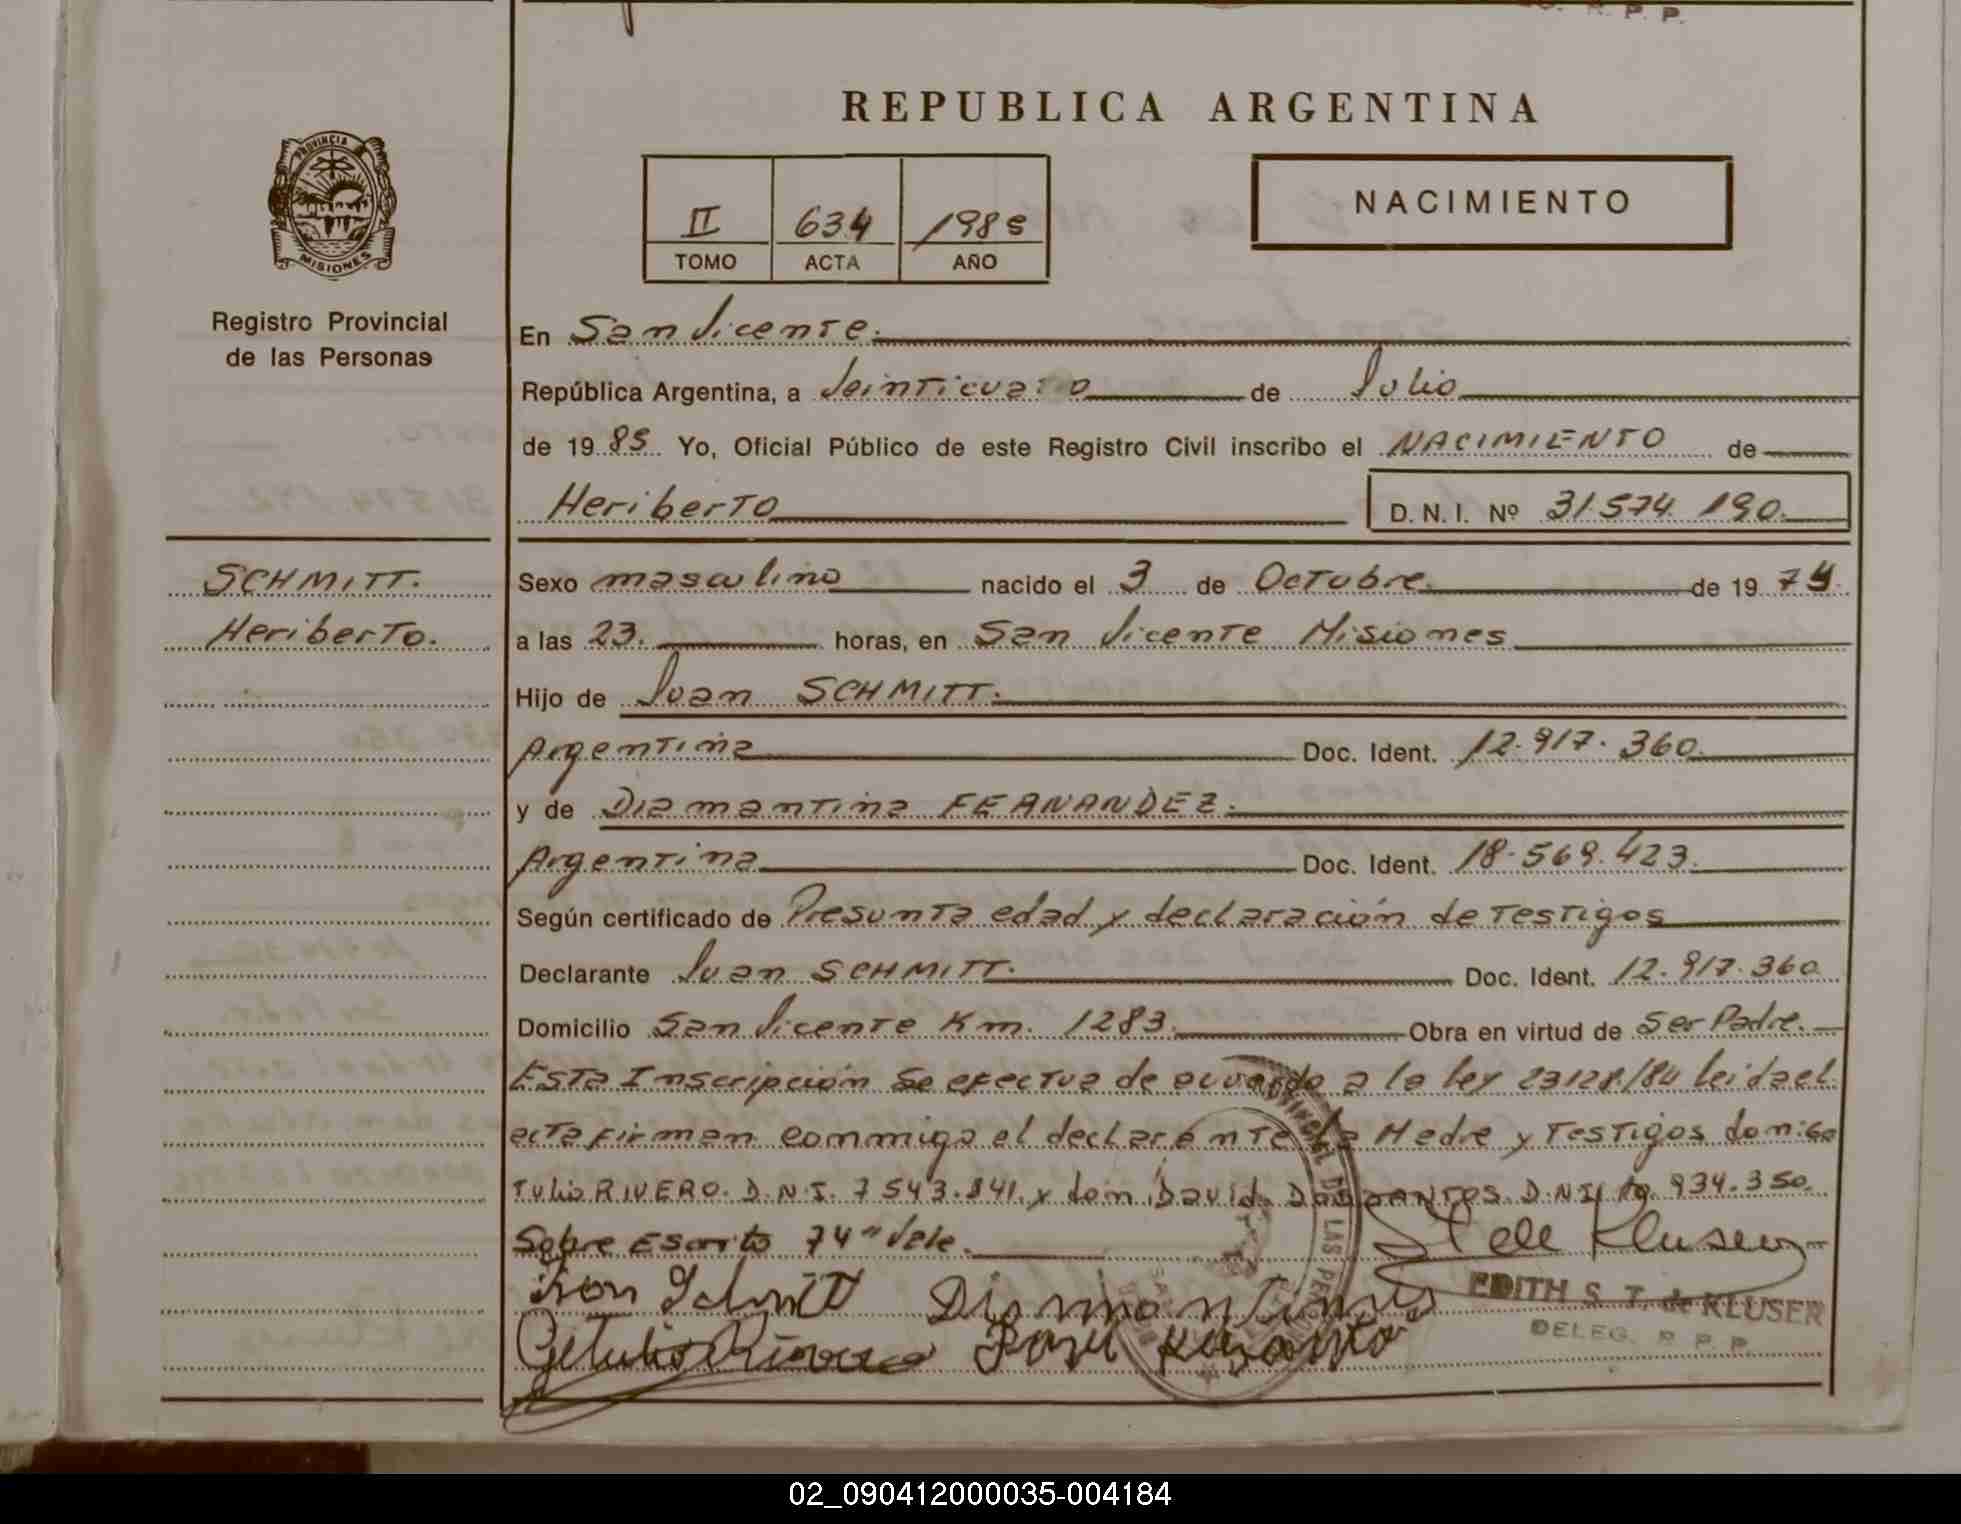 R. P. P.
REPUBLICA ARGENTINA
PROVINCIA
MISIONES
Registro Provincial
de las Personas
II 634 1985
TOMO ACTA AÑO
NACIMIENTO
En San Vicente.
República Argentina, a Veinticuatro de Julio
de 1985 Yo, Oficial Público de este Registro Civil inscribo el NACIMIENTO de
Heriberto D. N. I. Nº 31.574.190.
SCHMITT.
Heriberto.
Sexo masculino nacido el 3 de Octubre de 1974.
a las 23. horas, en San Vicente Misiones
Hijo de Juan SCHMITT.
Argentina Doc. Ident. 12.917.360
y de Diamantina FERNANDEZ.
Argentina Doc. Ident. 18.569.423.
Según certificado de Presunta edad y declaración de testigos
Declarante Juan SCHMITT. Doc. Ident. 12.917.360
Domicilio San Vicente Km. 1283. Obra en virtud de Ser Padre.
Esta Inscripción se efectua de acuerdo a la ley 23128/84 leida el
acta firman conmigo el declarante la Madre y Testigos don
Tulio RIVERO. D.N.I. 7543.841. y don David D.N.I. 934.350.
Sobre Escrito 74" Vale.
Diamantina
Getulio Rivero
EDITH S. T. de KLUSER
DELEG. R. P. P.
02_090412000035-004184